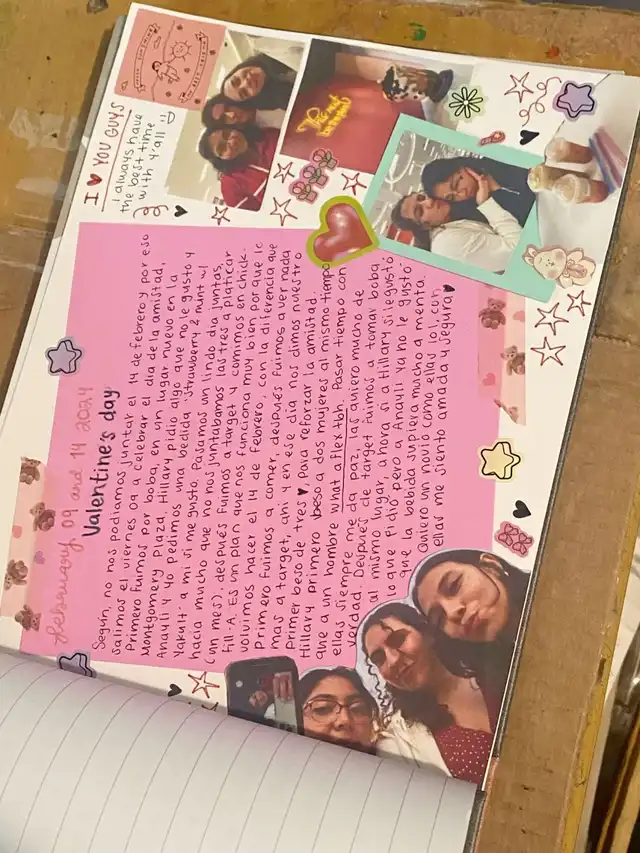 February, 09 and 14 2024
Valentine's day
Según, no nos podíamos juntar el 14 de febrero y por eso
salimos el viernes 09 a celebrar el día de la amistad,
Primero fuimos por boba, en un lugar nuevo en la
Montgomery Plaza, Hillary pidio algo que no le gusto y
Anayli y yo pedimos una bedida "strawberry & mint w/
Yakult" a mi si me gusto. Pasamos un lindo dia juntas,
hacia mucho que no nos juntabamos las tres a platicar
(un mes), después fuimos a target y comimos en chick-
fill-A. Es un plan que nos funciona muy bien, por que lo
volvimos hacer el 14 de febrero, con la diferencia que
primero fuimos a comer, después fuimos a ver nada
mas a target, ahí y en ese dia nos dimos nuestro
primer beso de tres ♥, para reforzar la amistad.
Hillary primero beso a dos mujeres al mismo tiempo
que a un hombre what a flex tbh. Pasar tiempo con
ellas siempre me da paz, las quiero mucho de
verdad. Después de target fuimos a tomar boba
al mismo lugar, ahora si a Hillary si le gustó
lo que pidio, pero a Anayli ya no le gustó
que la bebida supiera mucho a menta.
Quiero un novio como ellas lol, con
ellas me siento amada y segura ♥
I ♥ YOU GUYS
I always have
the best time
with y'all :)